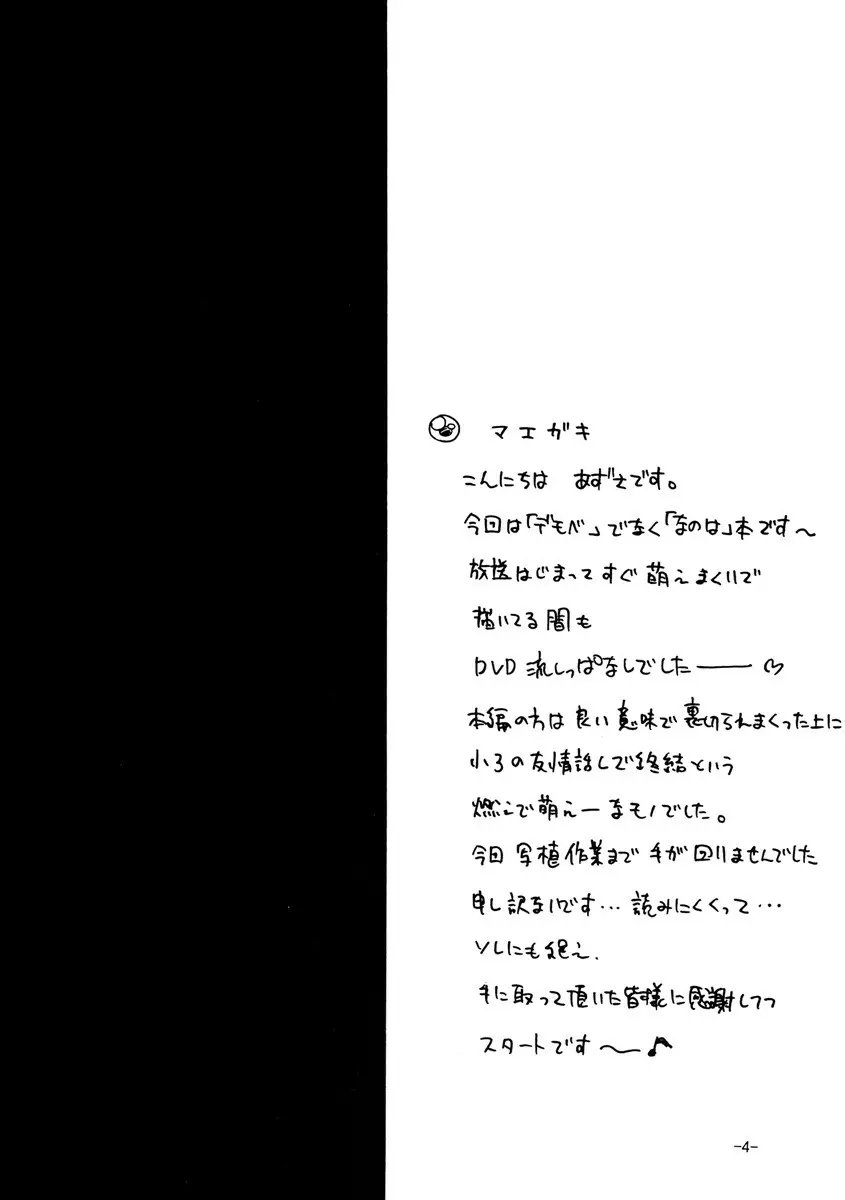 マエガキ
こんにちは あずきです。
今回は「デモベ」でなく「なのは」本です〜
放送はじまってすぐ萌えまくりで
描いてる間も
DVD 流しっぱなしでした——♡
本編の方は良い意味で裏切られまくった上に
小3の友情話しで終結という
燃えで萌えーなモノでした。
今回 写植作業まで手が回りませんでした
申し訳ないです… 読みにくくって…
ソレにも絶え、
手に取って頂いた皆様に感謝してつ
スタートです〜♪
-4-